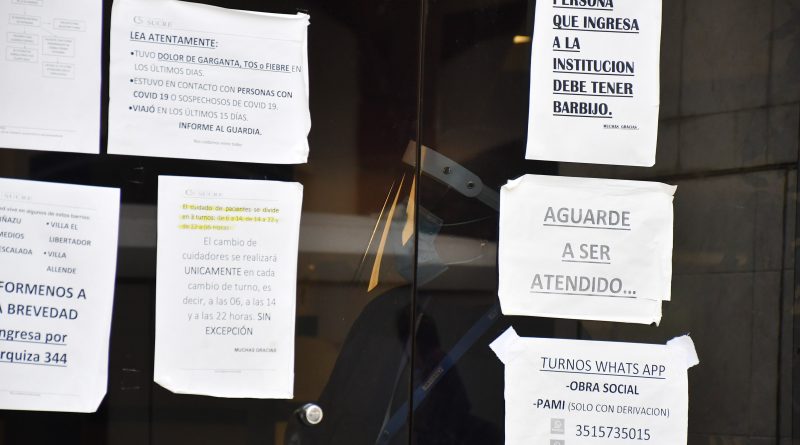 SUCRE
LEA ATENTAMENTE:
•TUVO DOLOR DE GARGANTA, TOS o FIEBRE EN
LOS ÚLTIMOS DIAS.
•ESTUVO EN CONTACTO CON PERSONAS CON
COVID 19 O SOSPECHOSOS DE COVID 19.
•VIAJÓ EN LOS ÚLTIMOS 15 DÍAS.
INFORME AL GUARDIA.
PERSONA
QUE INGRESA
A LA
INSTITUCION
DEBE TENER
BARBIJO.
MUCHAS GRACIAS
SUCRE
dad vive en algunos de estos barrios
IÑAZU
•VILLA EL
MEDIOS
LIBERTADOR
ESCALADA
•VILLA
ALLENDE
FORMENOS A
A BREVEDAD
ngresa por
rquiza 344
SUCRE
El cuidado de pacientes se divide
en 3 turnos: de 6 a 14, de 14 a 22 y
de 22 a 06 horas.
El cambio de
cuidadores se realizará
UNICAMENTE en cada
cambio de turno, es
decir, a las 06, a las 14
y a las 22 horas. SIN
EXCEPCIÓN
MUCHAS GRACIAS
AGUARDE
A SER
ATENDIDO...
TURNOS WHATS APP
-OBRA SOCIAL
-PAMI (SOLO CON DERIVACION)
3515735015